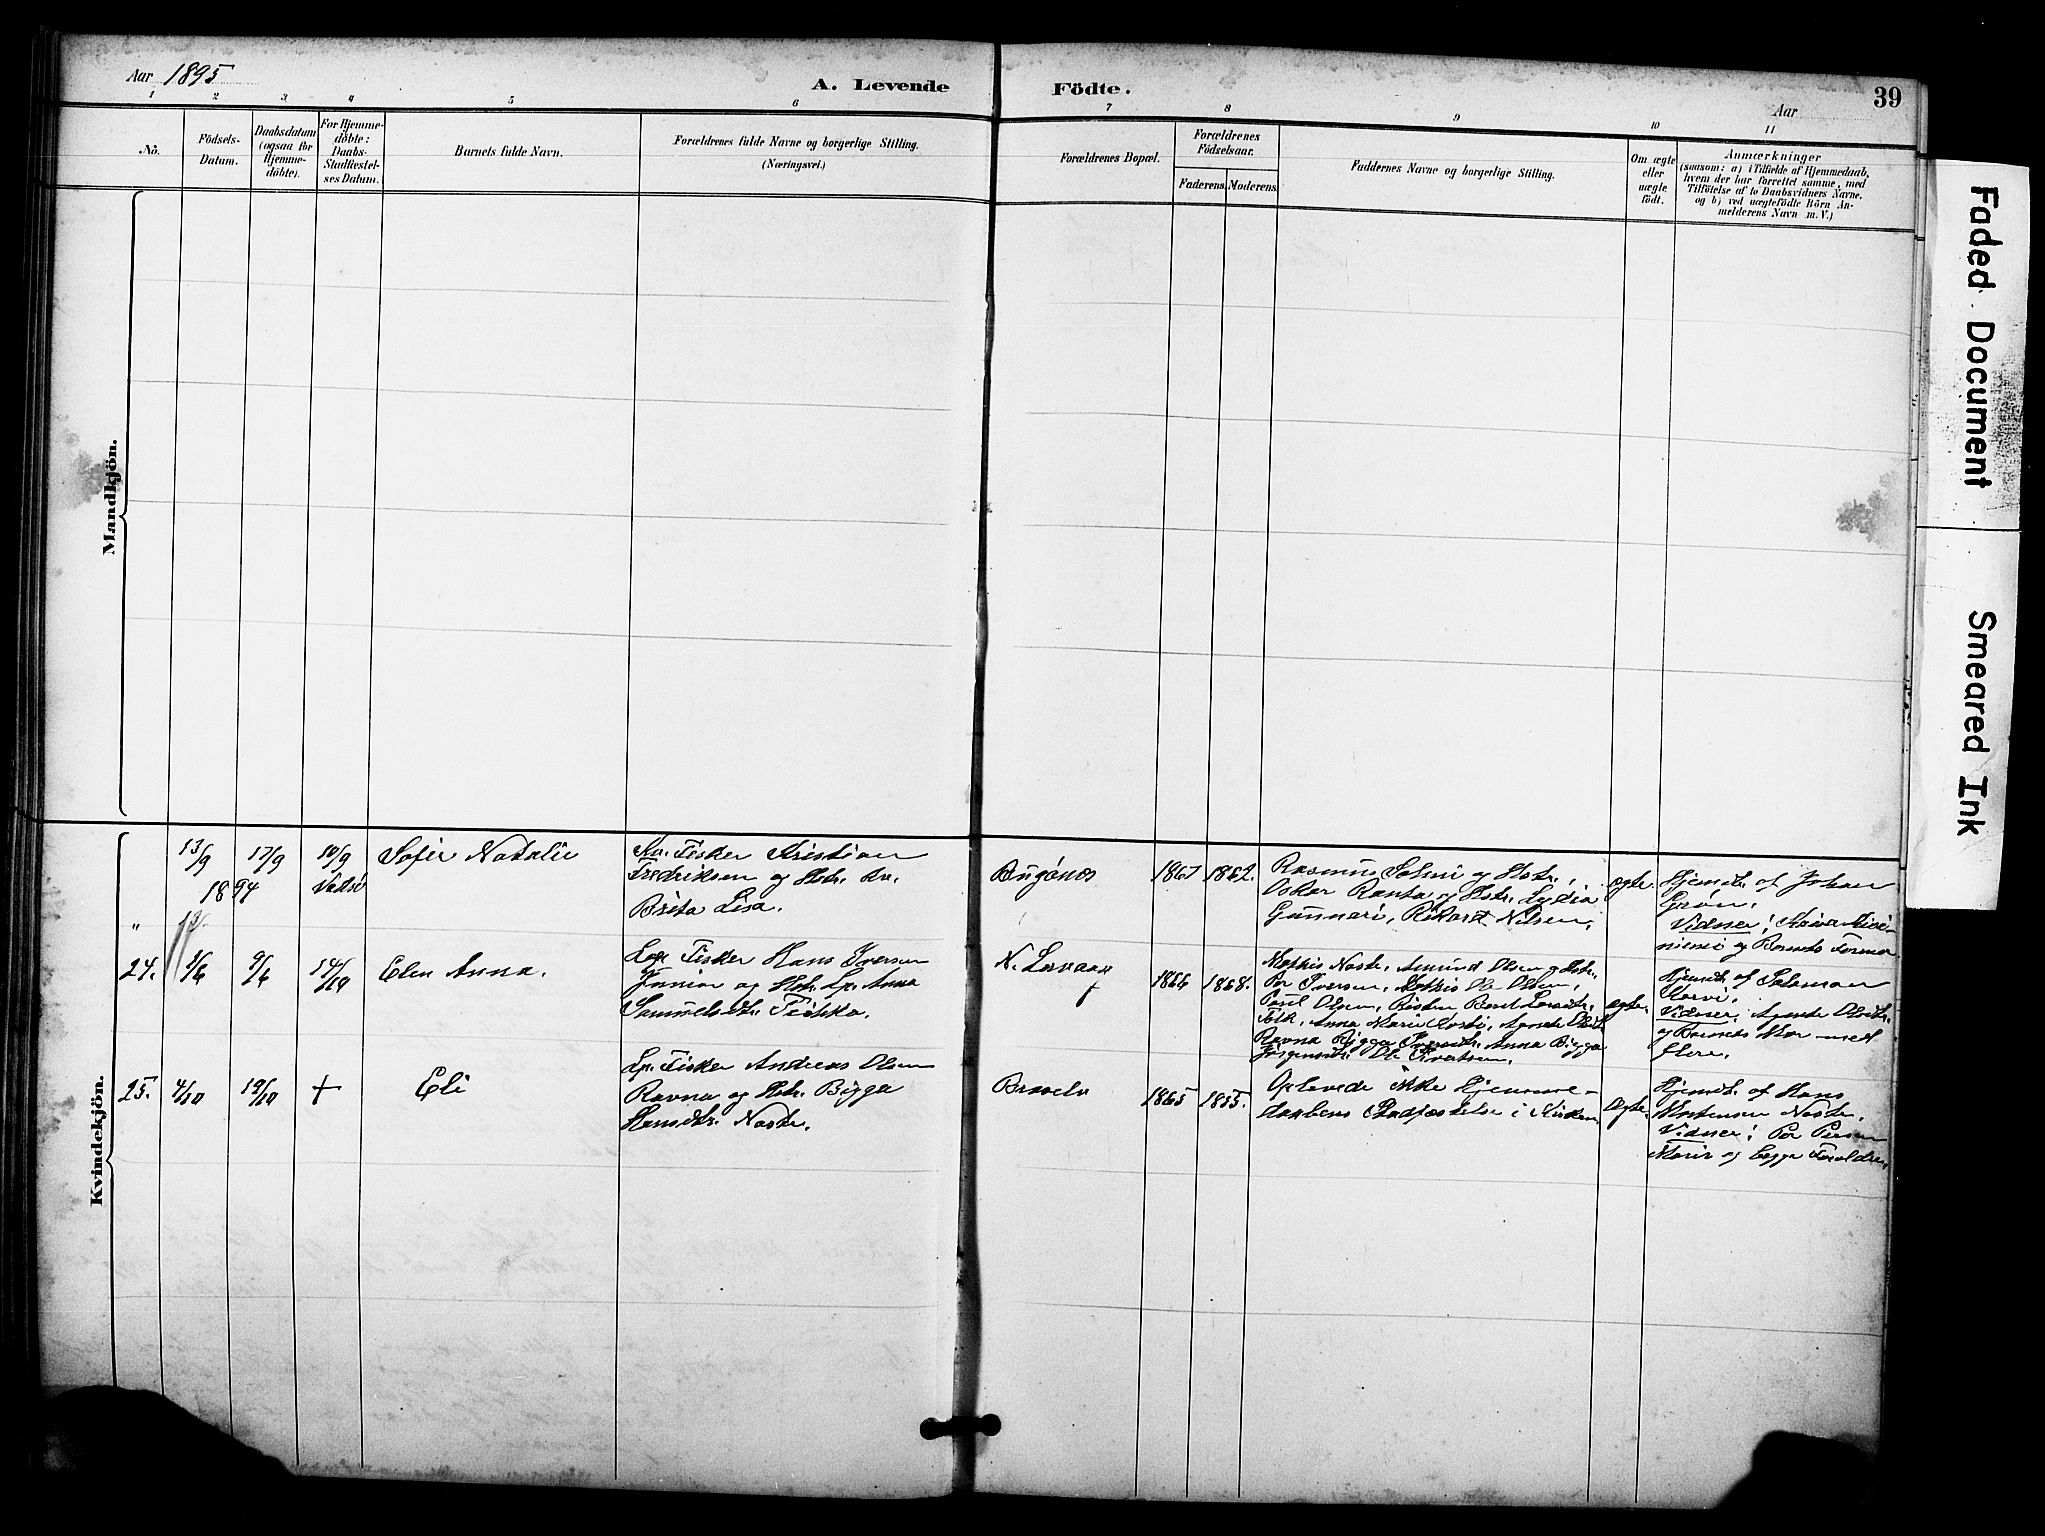 Aar 1895
A. Levende Födte.
Aar
39
1 2 3 4 5 6 7 8 9 10 11
No.
Födsels-
Datum.
Daabsdatum
(ogsaa for
Hjemme-
döbte).
For Hjemme-
döbte:
Daabs-
Stadfæstel-
ses Datum.
Barnets fulde Navn.
Forældrenes fulde Navne og borgerlige Stilling.
(Næringsvei.)
Forældrenes Bopæl.
Forældrenes
Födselsaar.
Faderens.
Moderens.
Faddernes Navne og borgerlige Stilling.
Om ægte
eller
uægte
födt.
Anmærkninger
(saasom: a) i Tilfælde af Hjemmedaab,
hvem der har forrettet samme, med
Tilföielse af to Daabsvidners Navne,
og b) ved uægtefödte Börn An-
melderens Navn m. V.)
Mandkjön.
Kvindekjön.
"
13/9
1894
17/9
10/9
Vadsö
Sofie Natalie
Kv. Fisker Kristian
Fredriksen og Hstr. Kv.
Brita Lisa.
Bugönes
1867
1862.
Rasmus Salmi og Hstr.,
Oskar Ranta og Hstr. Lydia
Gunnari, Rikard Nilsen.
ægte.
Hjemdt. af Johan
Vidner:
og Barnets Farmor
24.
1/6
9/6
14/10
Elen Anna.
Lp. Fisker Hans Iversen
Junior og Hstr. Lp. Anna
Samuelsdtr. Tishka.
1866
1868.
Mathis Naste, Amund Olsen og Hstr.,
Per Iversen, Mathis Ole Olsen,
Poul Olsen,
Ravna Bigga Iversdtr. Anna Bigga
Jörgensdtr.
ægte.
Hjemdt. af Salamon
Karvi.
Vidner:
og Barnets Mor med
flere.
25.
4/10
19/10
+
Eli
Lp. Fisker Andreas Olsen
Ravna og Hstr. Bigga
Hansdtr. Naste.
Braselv
1865
1855.
Oplevede ikke Hjemme-
daabens Stadfæstelse i Kirken
Ægte.
Hjemdt. af Hans
Mortensen Naste.
Vidner: Per Persen
Marie og begge Forældre.
Faded Document
Smeared Ink